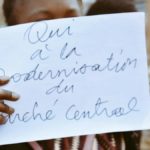 Oui
à la
modernisation
du
Marché Central